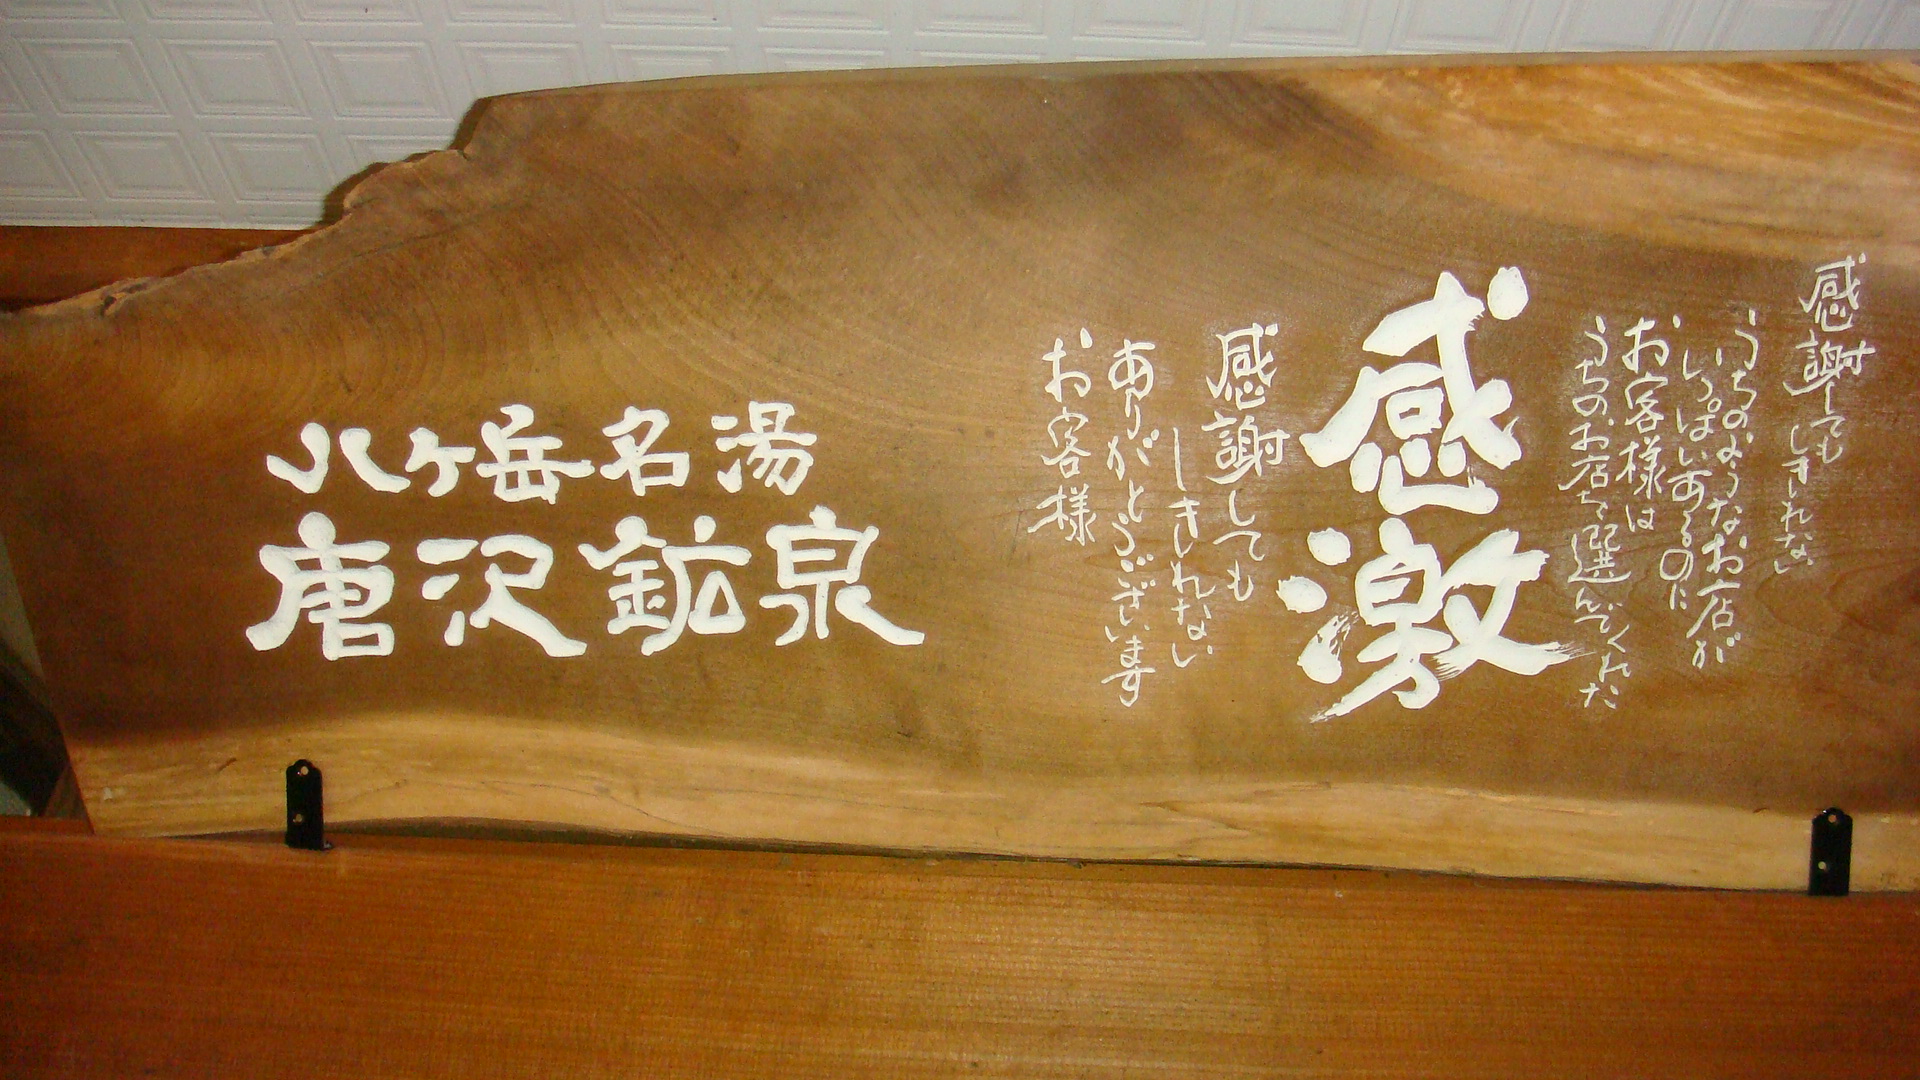 感謝しても
しきれない
うちのようなお店が
いっぱいあるのに
お客様は
うちのお店を選んでくれた
感激
感謝しても
しきれない
ありがとうございます
お客様
八ヶ岳名湯
唐沢鉱泉